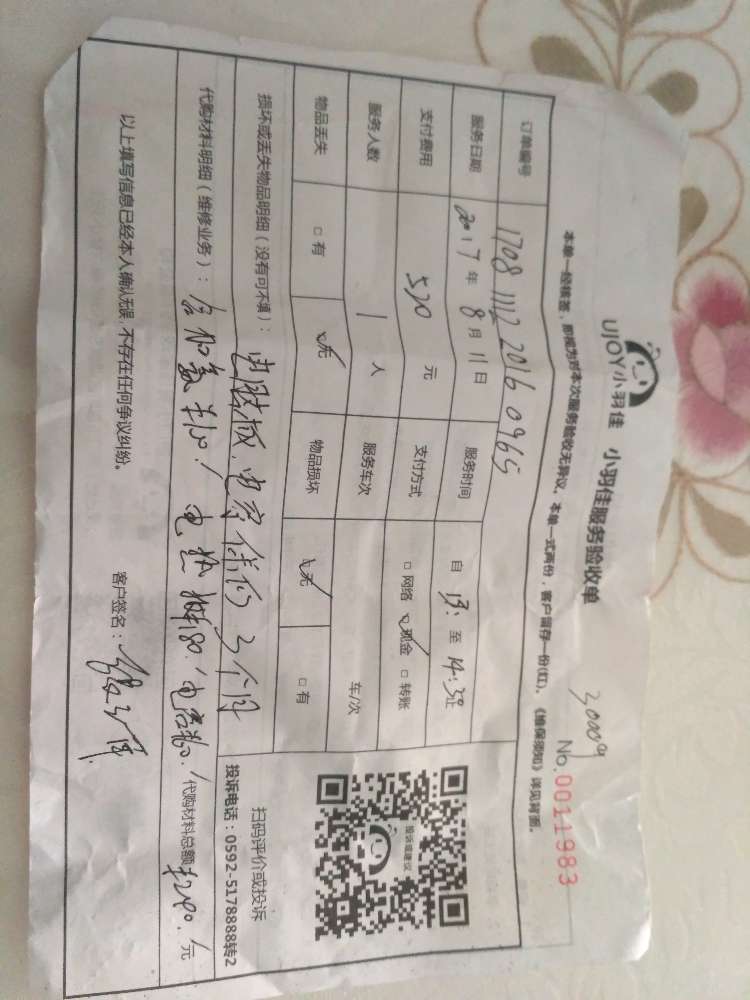 UJOY小羽佳 小羽佳服务验收单
3000g
No.0011983
本单一经核签，即视为对本次服务验收无异议。本单一式两份，客户留存一份(红)。《维保须知》详见背面。
订单编号 1708 1112 2016 0965
服务日期 2017年8月11日 服务时间 自 13: 至 14:30止
支付费用 520 元 支付方式 □网络 ☑现金 □转账
服务人数 1 人 服务车次 车/次
物品丢失 □有 ☑无 物品损坏 ☑无 □有
损坏或丢失物品明细（没有可不填）：
保修3个月
代购材料明细（维修业务）：
电热棒180
代购材料总额 元
以上填写信息已经本人确认无误，不存在任何争议纠纷。
客户签名：
投诉或建议
扫码评价或投诉
投诉电话：0592-5178888转2